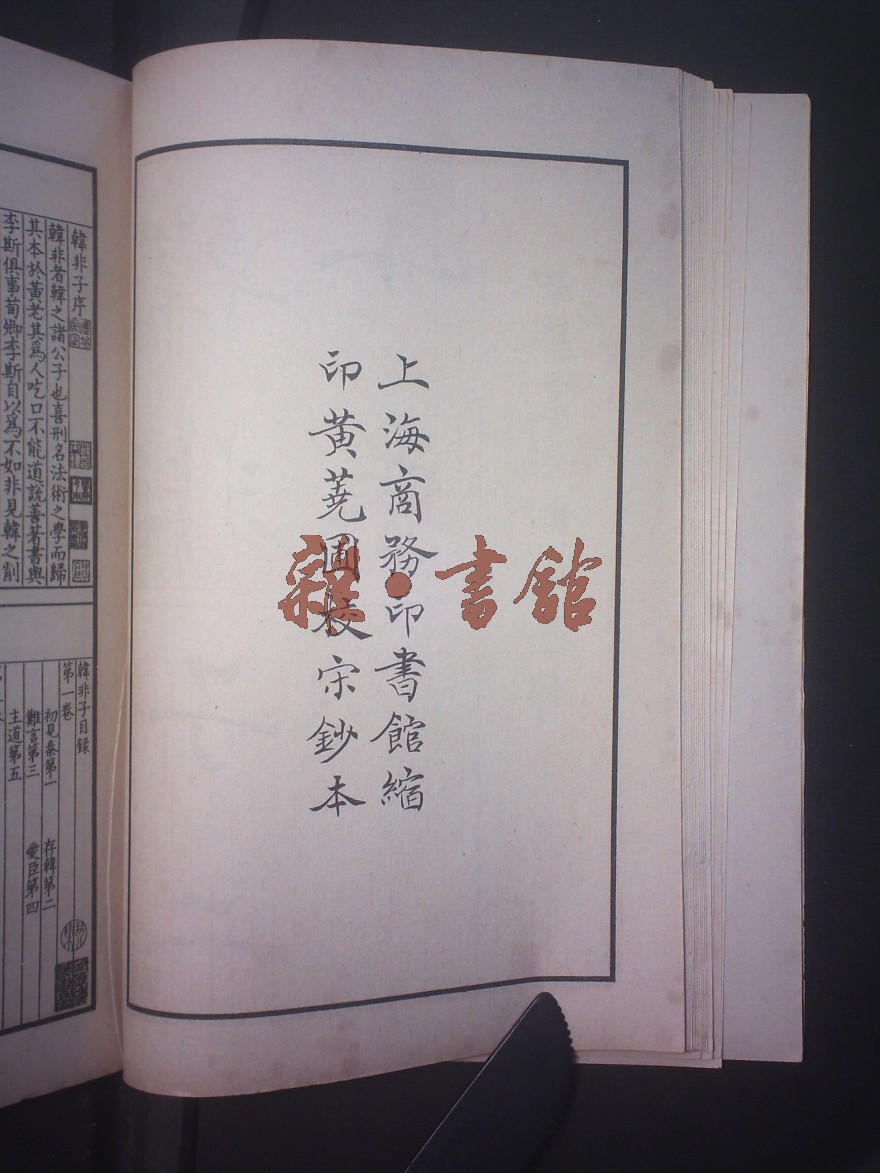 上海商務印書館縮
印黃蕘圃校宋鈔本
雜·書館
韓非子序
韓非者韓之諸公子也喜刑名法術之學而歸
其本於黃老其爲人吃口不能道說善著書與
李斯俱事荀卿李斯自以爲不如非見韓之削
韓非子目錄
第一卷
初見秦第一 存韓第二
難言第三 愛臣第四
主道第五